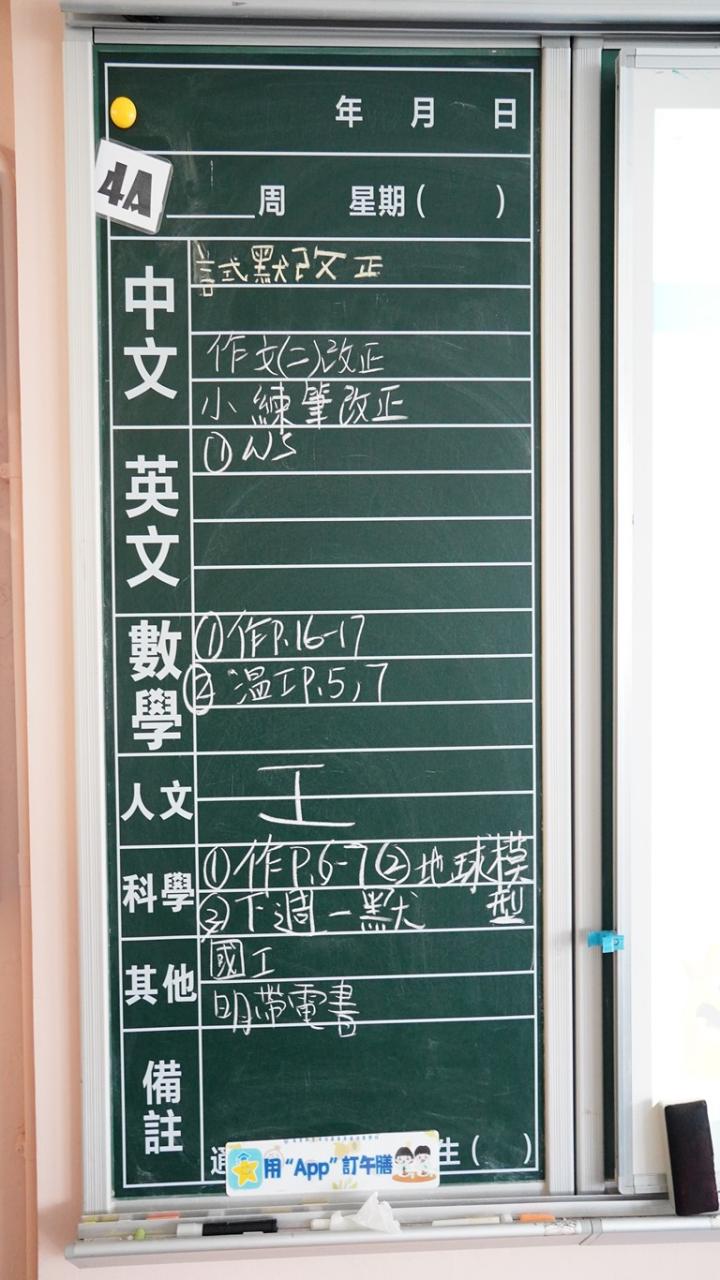 年 月 日
4A
周 星期( )
中文
試默改正
作文(二)改正
小練筆改正
英文
① WS
數學
① 作P.16-17
② 温工P.5,7
人文
科學
① 作P.6-7 ② 地球模型
③ 下週一默
其他
國工
明帶電書
備註
通
生( )
用“App”訂午膳